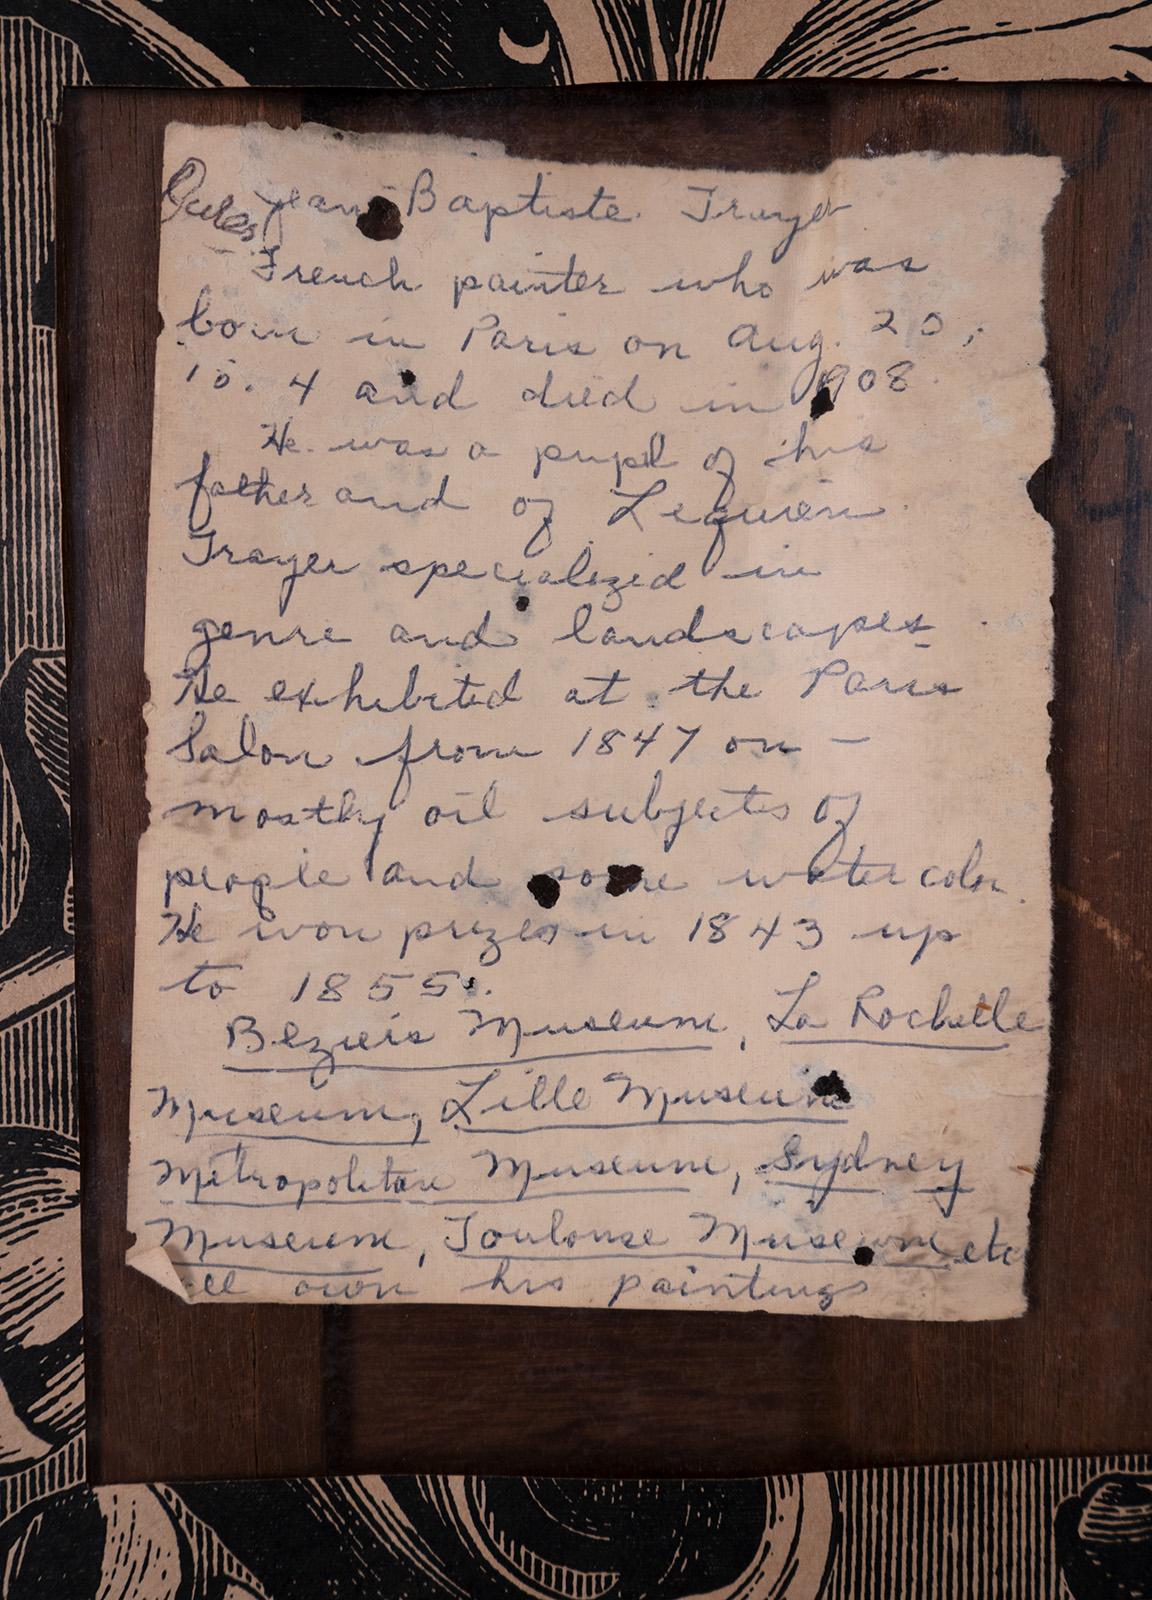 Jules Jean Baptiste Trayer
French painter who was
born in Paris on Aug. 20,
4 and died in 1908
He was a pupil of his
father and of Lequien
Trayer specialized in
genre and landscapes
He exhibited at the Paris
Salon from 1847 on —
mostly oil subjects of
people and some watercolor.
He won prizes in 1843 up
to 1855.
Beziers Museum, La Rochelle
Museum, Lille Museum
Metropolitan Museum, Sydney
Museum, Toulouse Museum etc
own his paintings